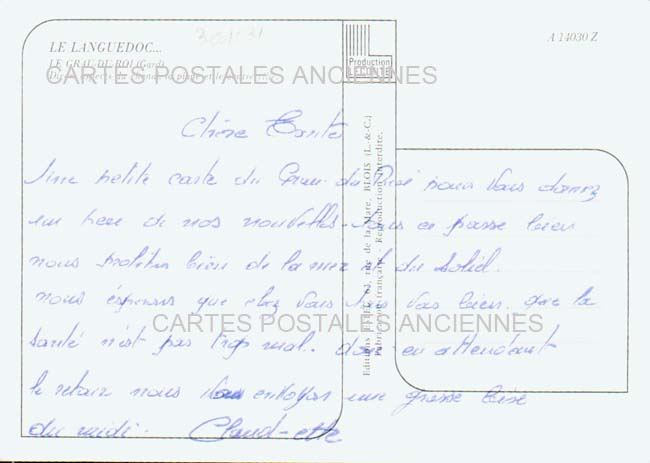 LE LANGUEDOC...
LE GRAU-DU-ROI (Gard)
A 14030 Z
Production
LECONTE
CARTES POSTALES ANCIENNES
Chère Tante
Une petite carte du Grau du Roi pour vous donner
un peu de nos nouvelles. Tous ce passe bien
nous profitons bien de la mer et du Soleil.
nous éspérons que chez vous tous vas bien. que la
CARTES POSTALES ANCIENNES
Santé n'est pas trop mal. donc en attendant
le retour nous vous envoyons une grosse bise
du midi. Claud-ette
Editions ESTEL, 61, rue de la Mare, BLOIS (L.-&-C.)
Fabrication française. Reproduction interdite.